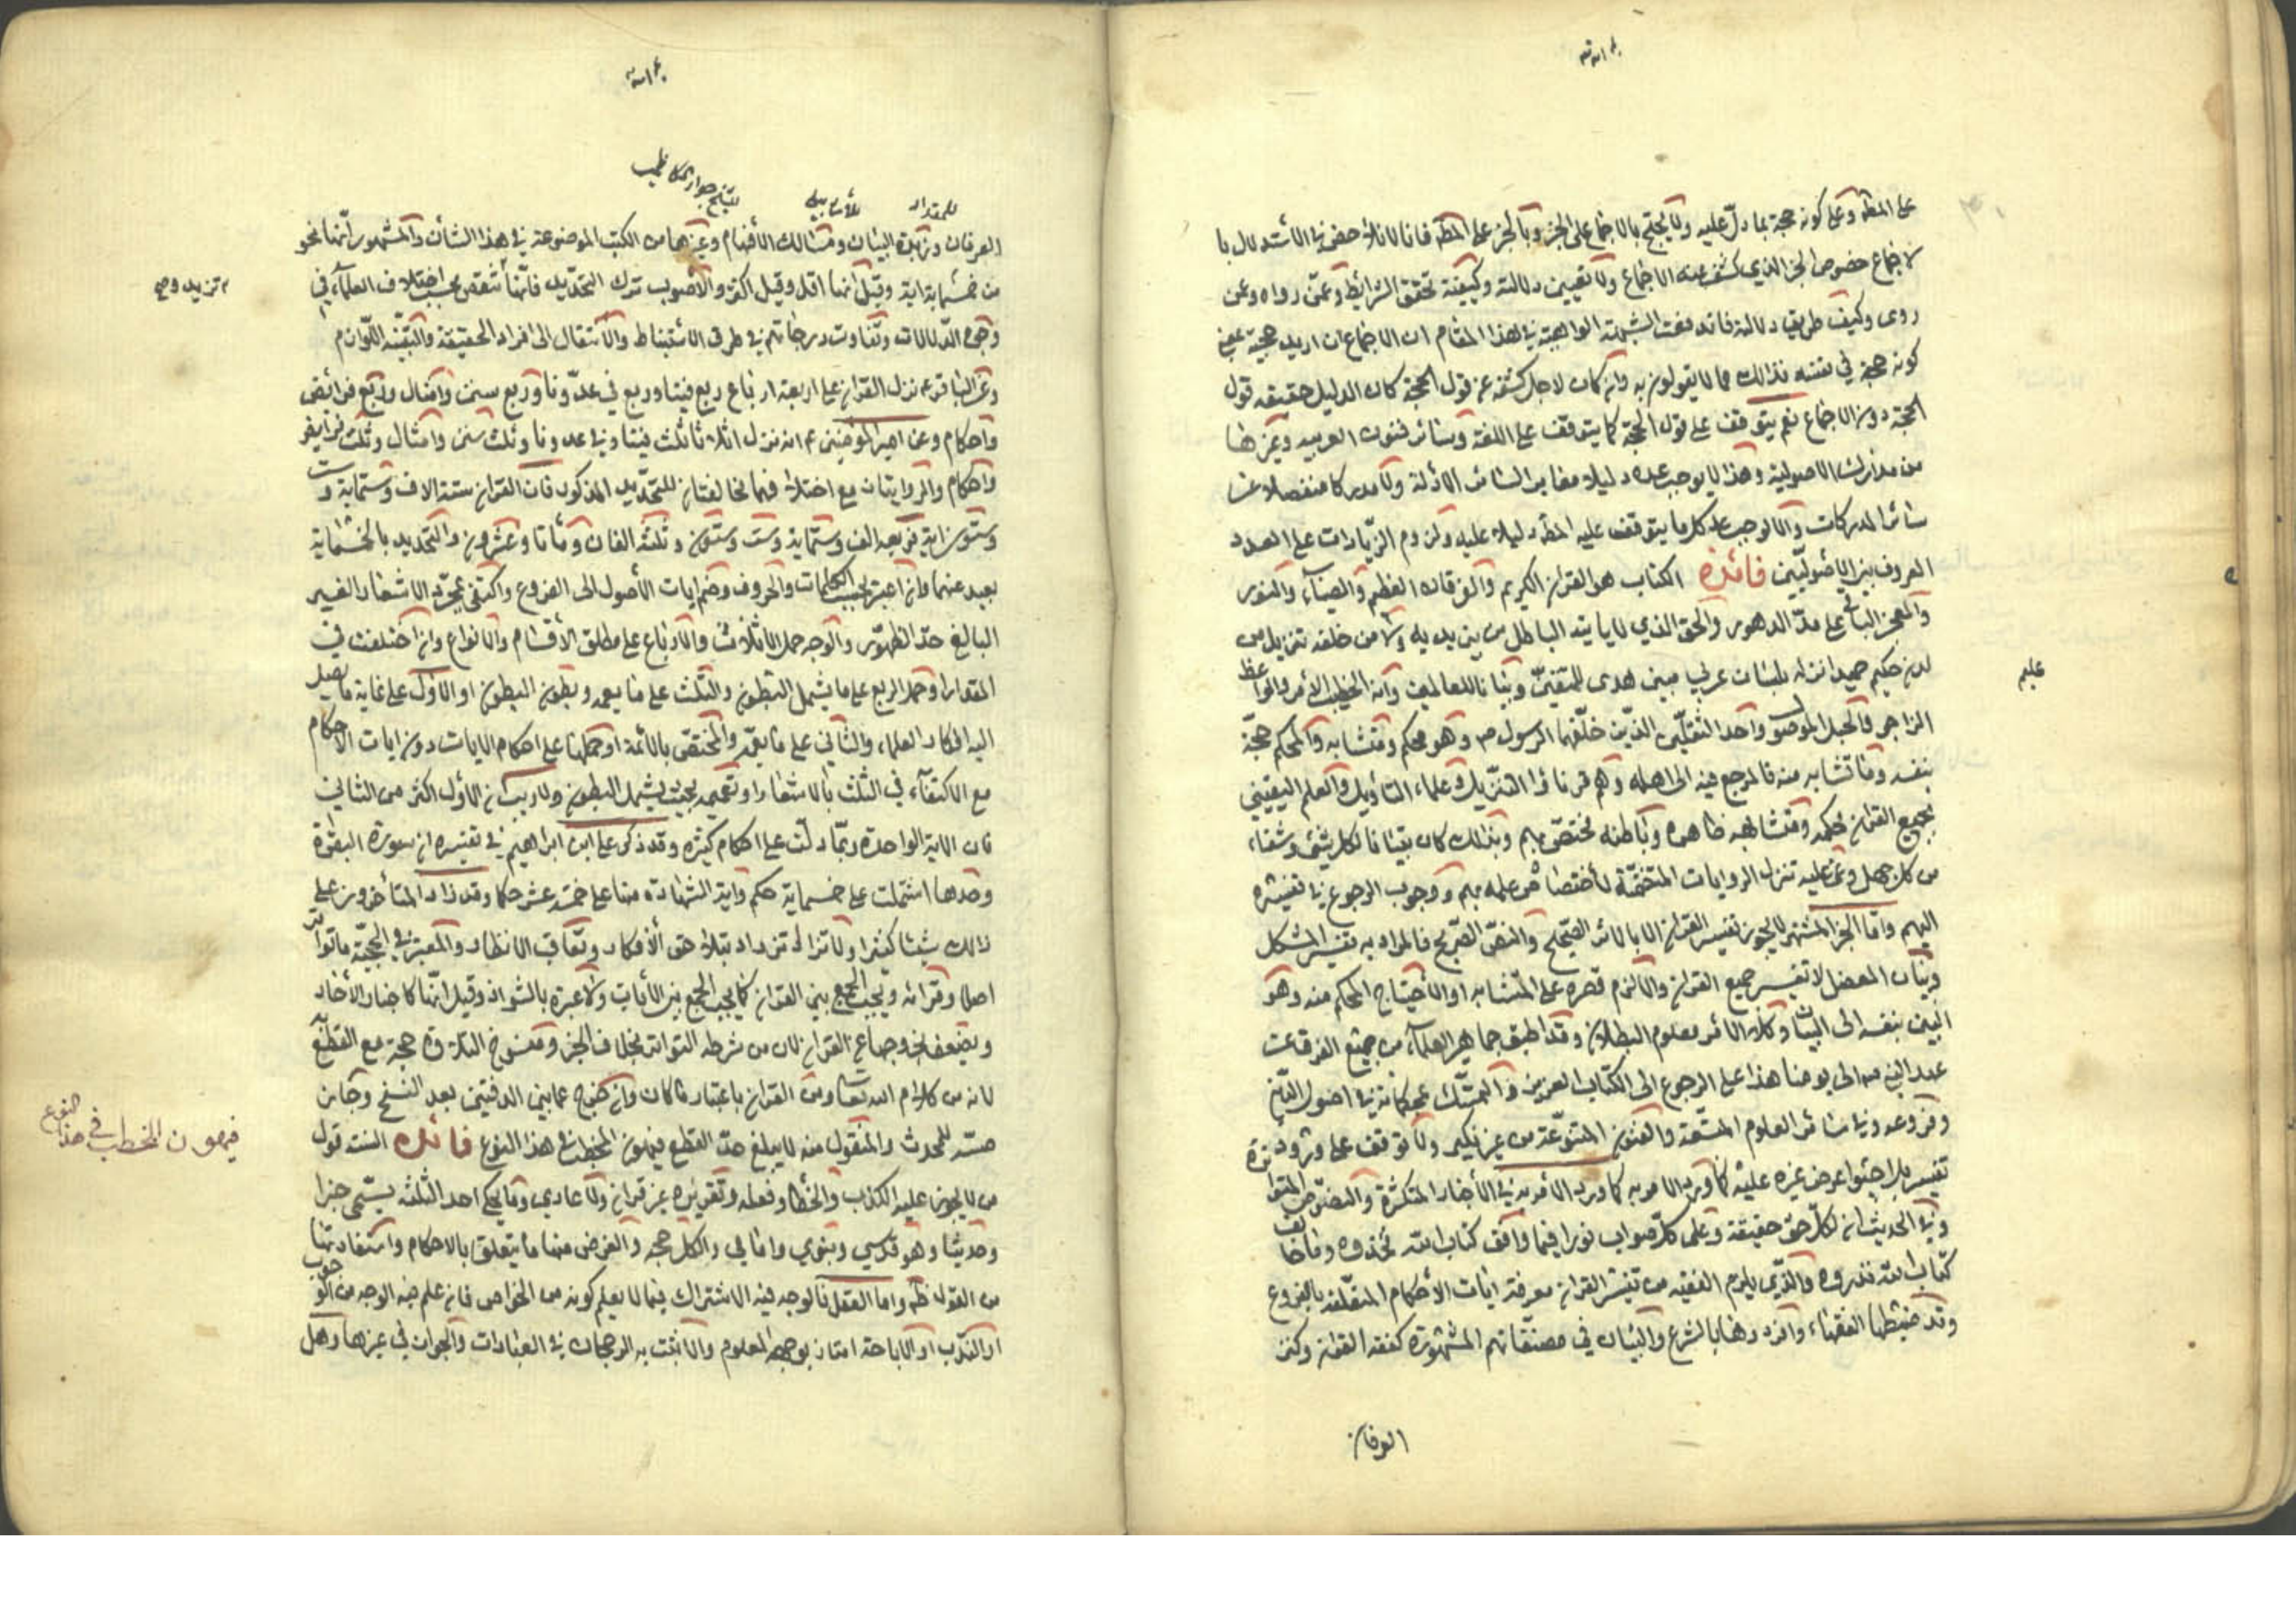 على المط وعلى كونه حجة بما دل عليه ولا يحتج بالاجماع على الخبر وبالخبر على المط فانا لا نلاحظ في الاستدلال با
لاجماع خصوص الخبر الذي كشف عنه الاجماع ولا تعيين دلالته وكيفية تحقق الشرائط وعمن رواه وعن
روى وكيف طريق دلالته فاندفعت الشبهة الواهية في هذا المقام ان الاجماع ان اريد حجيته بمعنى
كونه حجة في نفسه فذلك مما لا يقولون به وان كان لاجل كشفه عن قول الحجة كان الدليل حقيقة قول
الحجة دون الاجماع نعم يتوقف على قول الحجة كما يتوقف على اللغة وسائر فنون العربيه وغيرها
من مدارك الاصولية وهذا لا يوجب عده دليلا مغايرا لسائر الادلة ولا مدركا منفصلا عن
سائر المدركات والا لوجب عد كل ما يتوقف عليه المط دليلا عليه ولزوم الزيادات على العدد
المعروف بين الأصوليين فائدة الكتاب هو القران الكريم والفرقان العظيم والضياء والنور
والمعجز الباقي على مد الدهور والحق الذي لا يأتيه الباطل من بين يديه ولا من خلفه تنزيل من
لدن حكيم حميد انزله بلسان عربي مبين هدى للمتقين وبيانا للعالمين وانه الخطب الأمر والواعظ
عليم
الزاجر والحبل الموصو واحد الثقلين الذين خلفهما الرسول ص وهو محكم ومتشابه والمحكم حجة
بنفسه وما تشابه منه فالمرجع فيه الى اهله وهم قرناؤا التنزيل وعلماء التأويل والعلم اليقيني
بجميع القران محكمه ومتشابهه ظاهره وباطنه مختص بهم وبذلك كان تبيانا لكل شئ وشفاء
من كل جهل وعى عليه تنزل الروايات المتضمنة لأختصاص علمه بهم ووجوب الرجوع في تفسيره
اليهم واما الخبر المشتهر لا يجوز تفسير القران الا بالاثر الصحيح والنص الصريح فالمراد به تفسير المشكل
وبيان المعضل لا تفسير جميع القران والا لزم قصره على المتشابه او الأحتياج المحكم منه وهو
البين بنفسه الى البيان وكلا الامرين معلوم البطلان وقد اطبق جماهير العلماء من جميع الفرق عن
عهد النبي ص الى يومنا هذا على الرجوع الى الكتاب العزيز والتمسك بمحكماته في اصول الدين
وفروعه وفي سائر العلوم المتسعة والفنون المتنوعة من غير نكير ولا توقف على ورود
تفسير بل اجتوا عرض غيره عليه كما ورد الامر به في الأخبار المتكثرة والنصوص المتواترة
وفي الحديث ان لكل حق حقيقة وعلى كل صواب نورا فيما وافق كتاب الله فخذوه وما خالف
كتاب الله فذروه والذي يلزم الفقيه من تفسير القران معرفة ايات الأحكام المتعلقة بالفروع
وقد ضبطها الفقهاء وافردوها بالشرح والبيان في مصنفاتهم المشهورة كفقه القران وكنز
العرفان
للمقداد
للأسترابادي
للشيخ جواد الكاظمي
العرفان وزبدة البيان ومسالك الأفهام وغيرها من الكتب الموضوعة في هذا الشأن والمشهور انها نحو
من خمسماية اية وقيل انها اقل وقيل اكثر والأصوب ترك التحديد فانها تنقص بحسب اختلاف العلماء في
تزيد و
وجوه الدلالات وتفاوت درجاتهم في طرق الاستنباط والأنتقال الى افراد الحقيقة والبينة اللوازم
وعن الباقر ع نزل القران على اربعة ارباع ربع فينا وربع في عدونا وربع سنن وامثال وربع فرائض
واحكام وعن امير المؤمنين ع انه نزل اثلاثا ثلث فينا وفي عدونا وثلث سنن وامثال وثلث فرايض
واحكام والروايتان مع اختلافهما تخالفان للتحديد المذكور فان القران ستة الاف وستماية وست
وستون اية فربعه الف وستماية وست وستون وثلثه الفان ومأتا وعشرون والتحديد بالخمسماية
بعيد عنهما وان اعتبر بحسب الكلمات والحروف وضم ايات الأصول الى الفروع واكتفى بمجرد الاشعار الغير
البالغ حد الظهور والوجه حمل الاثلاث والارباع على مطلق الأقسام والانواع وان اختلفت في
المقدار او حمل الربع على ما يشمل البطون والثلث على ما يعمه وبطون البطون او الاول على غاية ما يصل
اليه افكار العلماء والثاني على ما يعم والمختص بالائمة او حملها على احكام الايات دون ايات الاحكام
مع الاكتفاء في الثلث بالاشعار او تعميمه بحيث يشمل البطون ولا ريب ان الاول اكثر من الثاني
فان الاية الواحدة ربما دلت على احكام كثيره وقد ذكر علي ابن ابراهيم في تفسيره ان سورة البقرة
وحدها اشتملت على خمسماية حكم واية الشهادة منها على خمسة عشر حكما وقد زاد المتأخرون على
ذلك شيئا كثيرا ولا تزال تزداد بتلاحق الأفكار وتعاقب الانظار والمعتبر في الحجية ما تواتر
اصلا وقرائة ويجب الجمع بين القران كما يجب الجمع بين الأيات ولا عبرة بالشواذ وقيل انها كاخبار الأحاد
ويضعف بخروجها عن القران لان من شرطه التواتر بخلاف الخبر ومنسوخ التلاوة حجة مع القطع به
لانه من كلام الله تعالى ومن القران باعتبار ما كان وان خرج عما بين الدفتين بعد النسخ وجاز
مسه للمحدث والمنقول منه لا يبلغ حد القطع فيهون الخطب في هذا النوع فائدة السنة قول
فيهون الخطب في هذا النوع
من لا يجوز عليه الكذب والخطأ وفعله وتقريره غير قران ولا عادي وما يحكي احد الثلثه يسمى خبرا
وحديثا وهو قدسي ونبوي وامامي والكل حجه والغرض منها ما يتعلق بالاحكام واستفادتها
من القول ظ واما الفعل فالوجه فيه الاشتراك فيما لا يعلم كونه من الخواص فان علم فيه الوجه من الوجوب
او الندب او الاباحة امتاز بوجهه المعلوم والا ثبت به الرجحان في العبادات والجواز في غيرها وهل